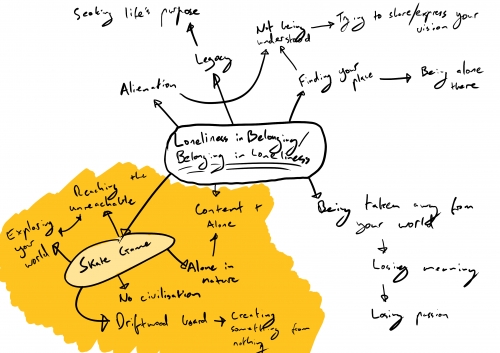 Seeking life's purpose
Not being
understood
Trying to share/express your
vision
Legacy
Alienation
Finding your
place
Being alone
there
Loneliness in Belonging/
Belonging in Loneliness
Reaching the
unreachable
Exploring
your
world
Skate Game
Content +
Alone
Alone in
nature
No civilisation
Driftwood board
Creating
something from
nothing
Being taken away from
your world
Losing meaning
Losing passion